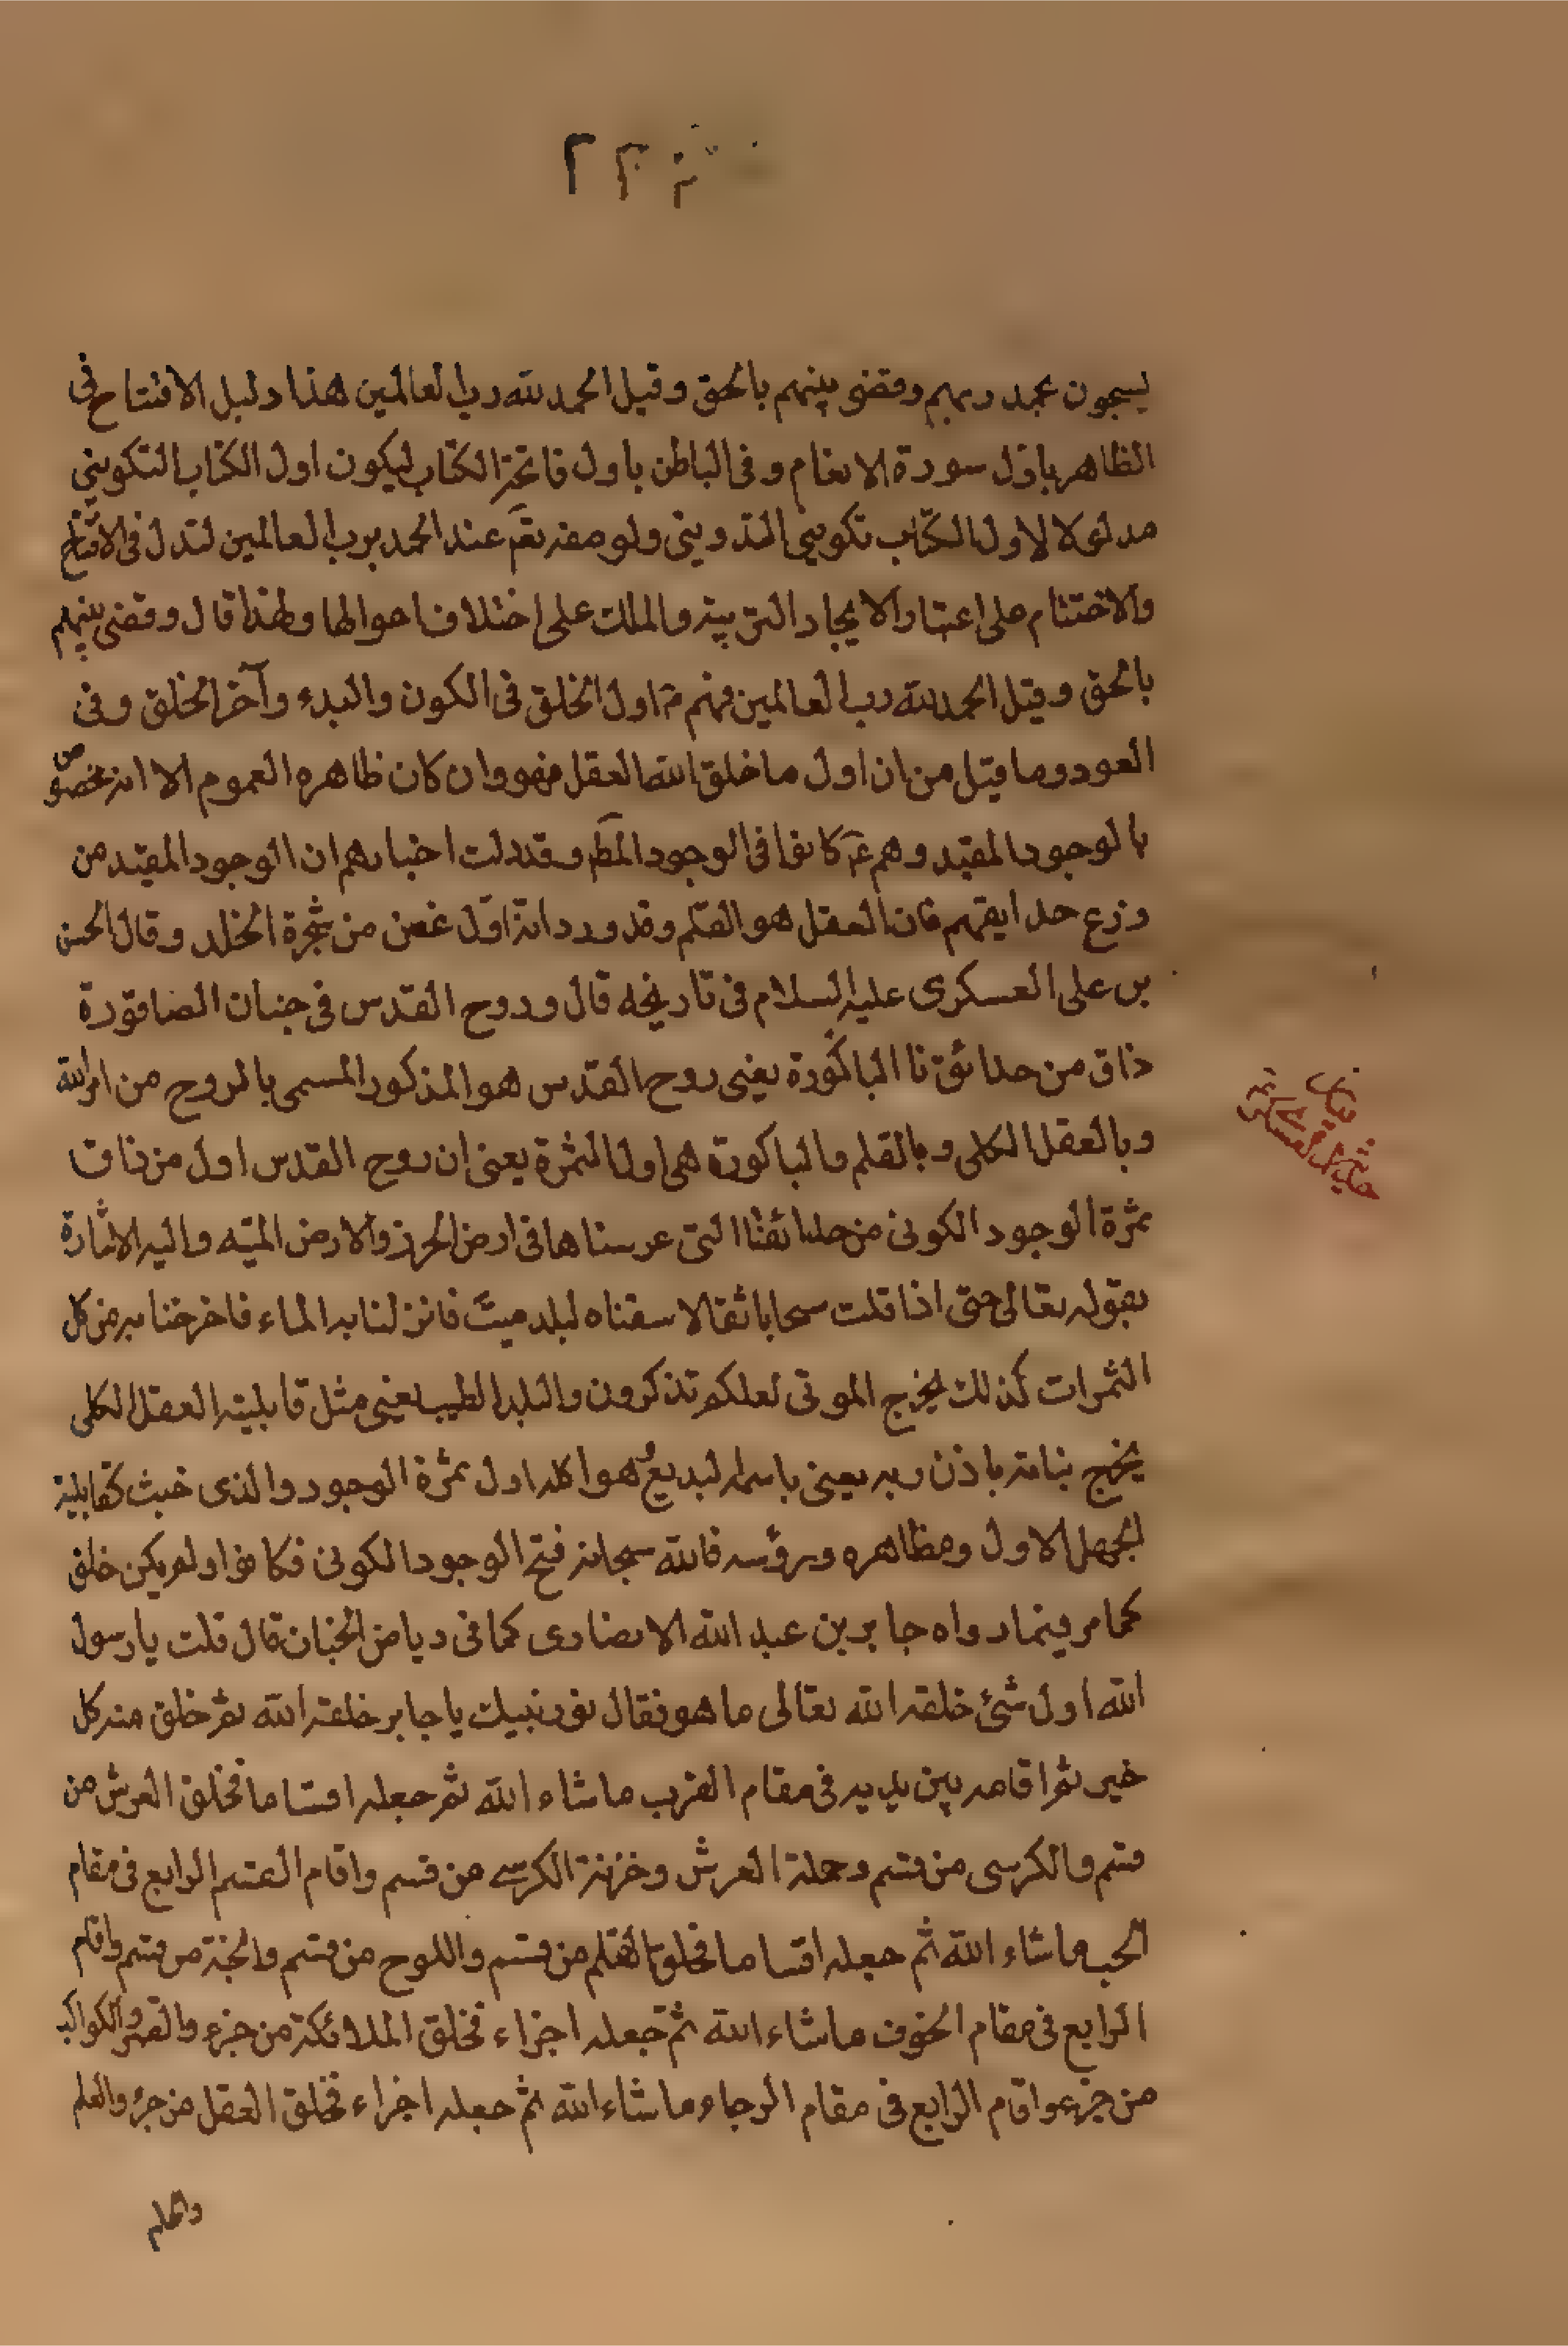 يسبحون بحمد ربهم وقضى بينهم بالحق وقيل الحمد لله رب العالمين هذا دليل الافتتاح فى
الظاهر باوّل سورة الانعام وفى الباطن باول فاتحة الكتاب ليكون اول الكتاب التكوينى
مدلولا لاول الكتاب تكوينى التدوينى ولوصفه تعم عند الحمد برب العالمين لتدل فى الافتتاح
والاختتام على اعتبار الايجاد التربيه والملك على اختلاف احوالها ولهذا قال وقضى بينهم
بالحق وقيل الحمد لله رب العالمين فهم ع اول الخلق فى الكون والبدء وآخر الخلق وفى
العود وما قيل من ان اول ما خلق الله العقل فهو وان كان ظاهره العموم الا انه مخصوص
بالوجود المقيد وهم ع كانوا فى الوجود المط وقد دلت اخبارهم ان الوجود المقيد من
وزع حدايقهم فان العقل هو القلم وقد ورد انه اوّل غصن من شجرة الخلد وقال الحسن
بن على العسكرى عليه السلام فى تاريخه قال وروح القدس فى جنان الصاقورة
ذاق من حدائقنا الباكورة يعنى روح القدس هو المذكور المسمى بالروح من امر الله
وبالعقل الكلى وبالقلم والباكورة هى اول الثمرة يعنى ان روح القدس اول من ذاق
ثمرة الوجود الكونى من حدائقنا التى عرسناها فى ارض الحرز والارض الميّته واليه الاشارة
بقوله تعالى حتى اذا قلت سحابا ثقالا سقناه لبلد ميّت فانزلنا به الماء فاخرجنا به من كل
الثمرات كذلك يخرج الموتى لعلكم تذكرون والبلد الطيب يعنى مثل قابلية العقل الكلى
يخرج بناته باذن ربه يعنى باسمه البديع هو اكله اول ثمرة الوجود والذى خبث كقابلية
الجهل الاول ومظاهره ورؤسه فالله سبحانه فتح الوجود الكونى فكانوا ولم يكن خلق
كما مر فيما رواه جابر بن عبد الله الانصارى كما فى رياض الجنان قال قلت يا رسول
الله اول شئ خلقه الله تعالى ما هو فقال نور نبيك يا جابر خلقه الله ثم خلق منه كل
خير ثم اقامه بين يديه فى مقام القرب ما شاء الله ثم جعله اقساما فخلق العرش من
قسم والكرسى من قسم وحملة العرش وخزنة الكرسے من قسم واقام القسم الرابع فى مقام
الحب ما شاء الله ثم جعله اقساما فخلق القلم من قسم واللوح من قسم والجنة من قسم واقام
الرابع فى مقام الخوف ما شاء الله ثم جعله اجزاء فخلق الملائكة من جزء والقمر والكواكب
من جزء واقام الرابع فى مقام الرجاء ما شاء الله ثم جعله اجزاء فخلق العقل من جزء والعلم